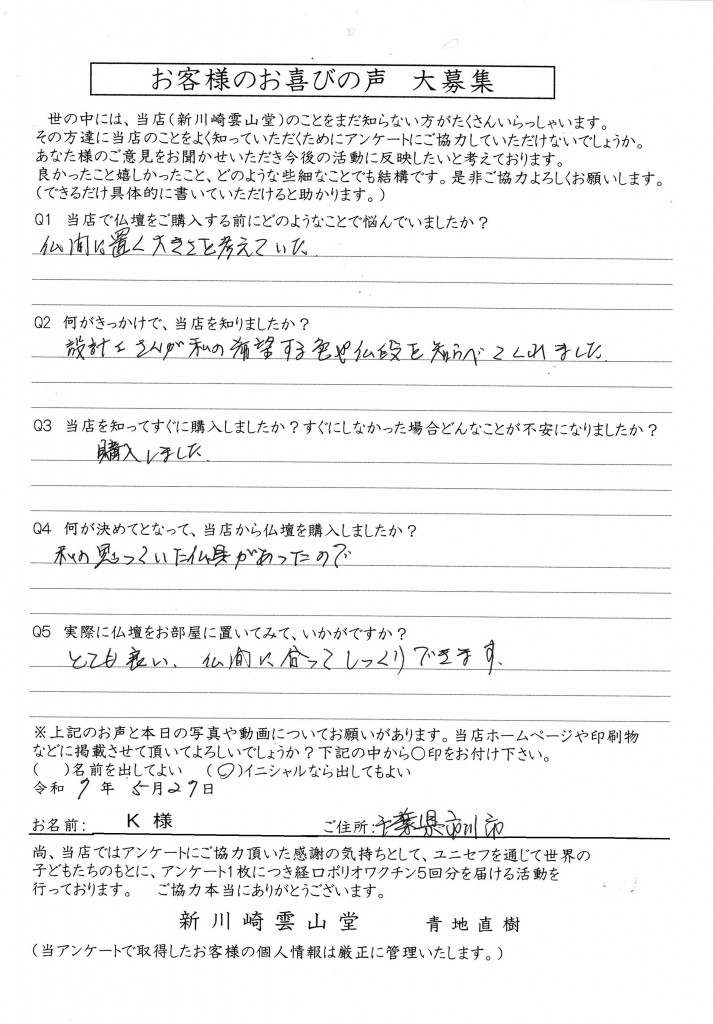 お客様のお喜びの声 大募集
世の中には、当店(新川崎雲山堂)のことをまだ知らない方がたくさんいらっしゃいます。
その方達に当店のことをよく知っていただくためにアンケートにご協力していただけないでしょうか。
あなた様のご意見をお聞かせいただき今後の活動に反映したいと考えております。
良かったこと嬉しかったこと、どのような些細なことでも結構です。是非ご協力よろしくお願いします。
(できるだけ具体的に書いていただけると助かります。)
Q1 当店で仏壇をご購入する前にどのようなことで悩んでいましたか?
仏間に置く大きさを考えていた.
Q2 何がきっかけで、当店を知りましたか?
設計士さんが私の希望する色や仏段を知らべてくれました.
Q3 当店を知ってすぐに購入しましたか?すぐにしなかった場合どんなことが不安になりましたか?
購入しました.
Q4 何が決めてとなって、当店から仏壇を購入しましたか?
私の思っていた仏具があったので
Q5 実際に仏壇をお部屋に置いてみて、いかがですか?
とても良い、仏間に合ってしっくりできます.
※上記のお声と本日の写真や動画についてお願いがあります。当店ホームページや印刷物
などに掲載させて頂いてよろしいでしょうか?下記の中から〇印をお付け下さい。
( )名前を出してよい (〇)イニシャルなら出してもよい
令和 7 年 5月27日
お名前: K 様 ご住所:千葉県市川市
尚、当店ではアンケートにご協力頂いた感謝の気持ちとして、ユニセフを通じて世界の
子どもたちのもとに、アンケート1枚につき経口ポリオワクチン5回分を届ける活動を
行っております。 ご協力本当にありがとうございます。
新川崎雲山堂 青地直樹
(当アンケートで取得したお客様の個人情報は厳正に管理いたします。)